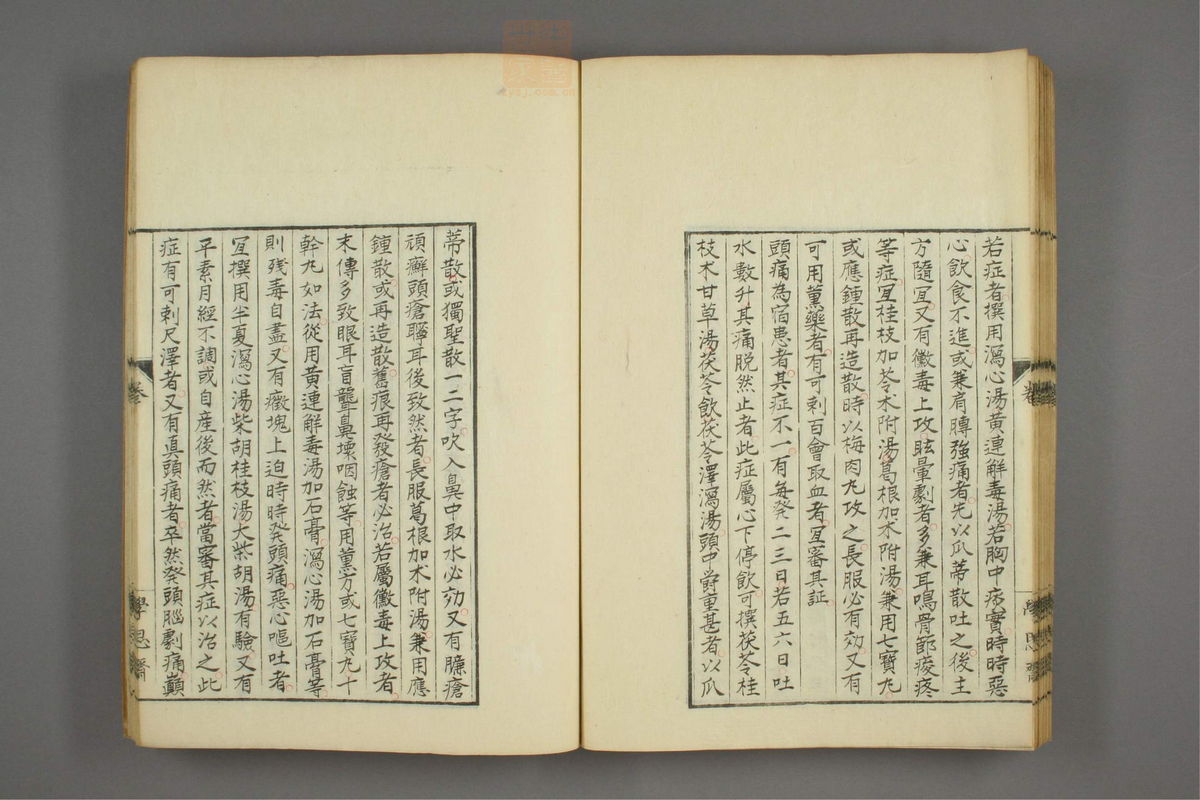 若症者撰用瀉心湯黃連解毒湯若胸中痰實時時惡
心飲食不進或兼肩膊強痛者先以瓜蒂散吐之後主
方隨宜又有黴毒上攻眩暈劇者多兼耳鳴骨節痠疼
等症宜桂枝加苓朮附湯葛根加朮附湯兼用七寶丸
或應鍾散再造散時以梅肉丸攻之長服必有效又有
可用薰藥者有可刺百會取血者宜審其証
頭痛為宿患者其症不一有每發二三日若五六日吐
水數升其痛脫然止者此症屬心下停飲可撰茯苓桂
枝朮甘草湯茯苓飲茯苓澤瀉湯頭中欝重甚者以瓜
蒂散或獨聖散一二字吹入鼻中取水必効又有臁瘡
頑癬頭瘡聤耳後致然者長服葛根加朮附湯兼用應
鍾散或再造散舊痕再發瘡者必治若屬黴毒上攻者
末傳多致眼耳盲聾鼻壞咽蝕等用薰方或七寶丸十
幹丸如法從用黃連解毒湯加石膏瀉心湯加石膏等
則殘毒自盡又有癥塊上迫時時發頭痛惡心嘔吐者
宜撰用半夏瀉心湯柴胡桂枝湯大柴胡湯有驗又有
平素月經不調或自產後而然者當審其症以治之此
症有可刺尺澤者又有真頭痛者卒然發頭腦劇痛巔
卷
學思齋